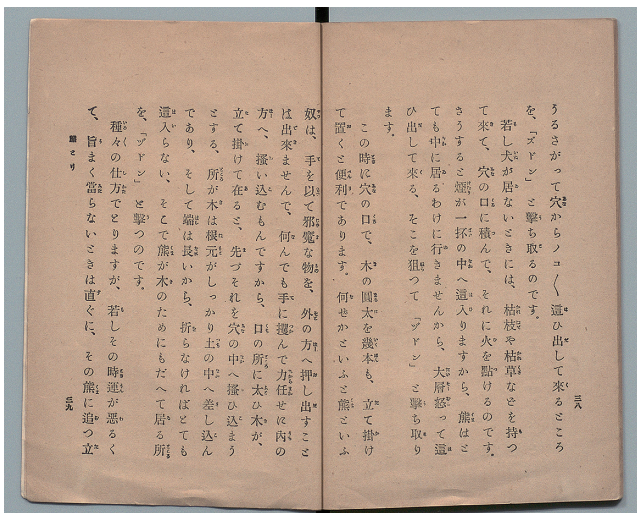 うるさがつて穴からノコ〱這ひ出して来るところ
を、「ズドン」と擊ち取るのです。
若し犬が居ないときには、枯枝や枯草などを持つ
て来て、穴の口に積んで、それに火を點けるのです。
さうすると煙が一杯の中へ這入りますから、熊はと
ても中に居るわけに行きませんから、大層怒つて這
ひ出して来る、そこを狙つて「ヅドン」と擊ち取り
ます。
この時に穴の口で、木の圓太を幾本も、立て掛け
て置くと便利であります。何せかといふと熊といふ
三八
奴は、手を以て邪魔な物を、外の方へ押し出すこと
は出來ませんで、何んでも手に攫んで力任せに內の
方へ、搔い込むもんですから、口の所に太ひ木が、
立て掛けて在ると、先づそれを穴の中へ搔ひ込まう
とする、所が木は根元がしつかり土の中へ差し込ん
であり、そして端は長いから、折らなければとても
這入らない、そこで熊が木のためにもだへて居る所
を、「ヅドン」と擊つのです。
種々の仕方でとりますが、若しその時運が惡るく
て、旨まく當らないときは直ぐに、その熊に追つ立
熊とり
三九